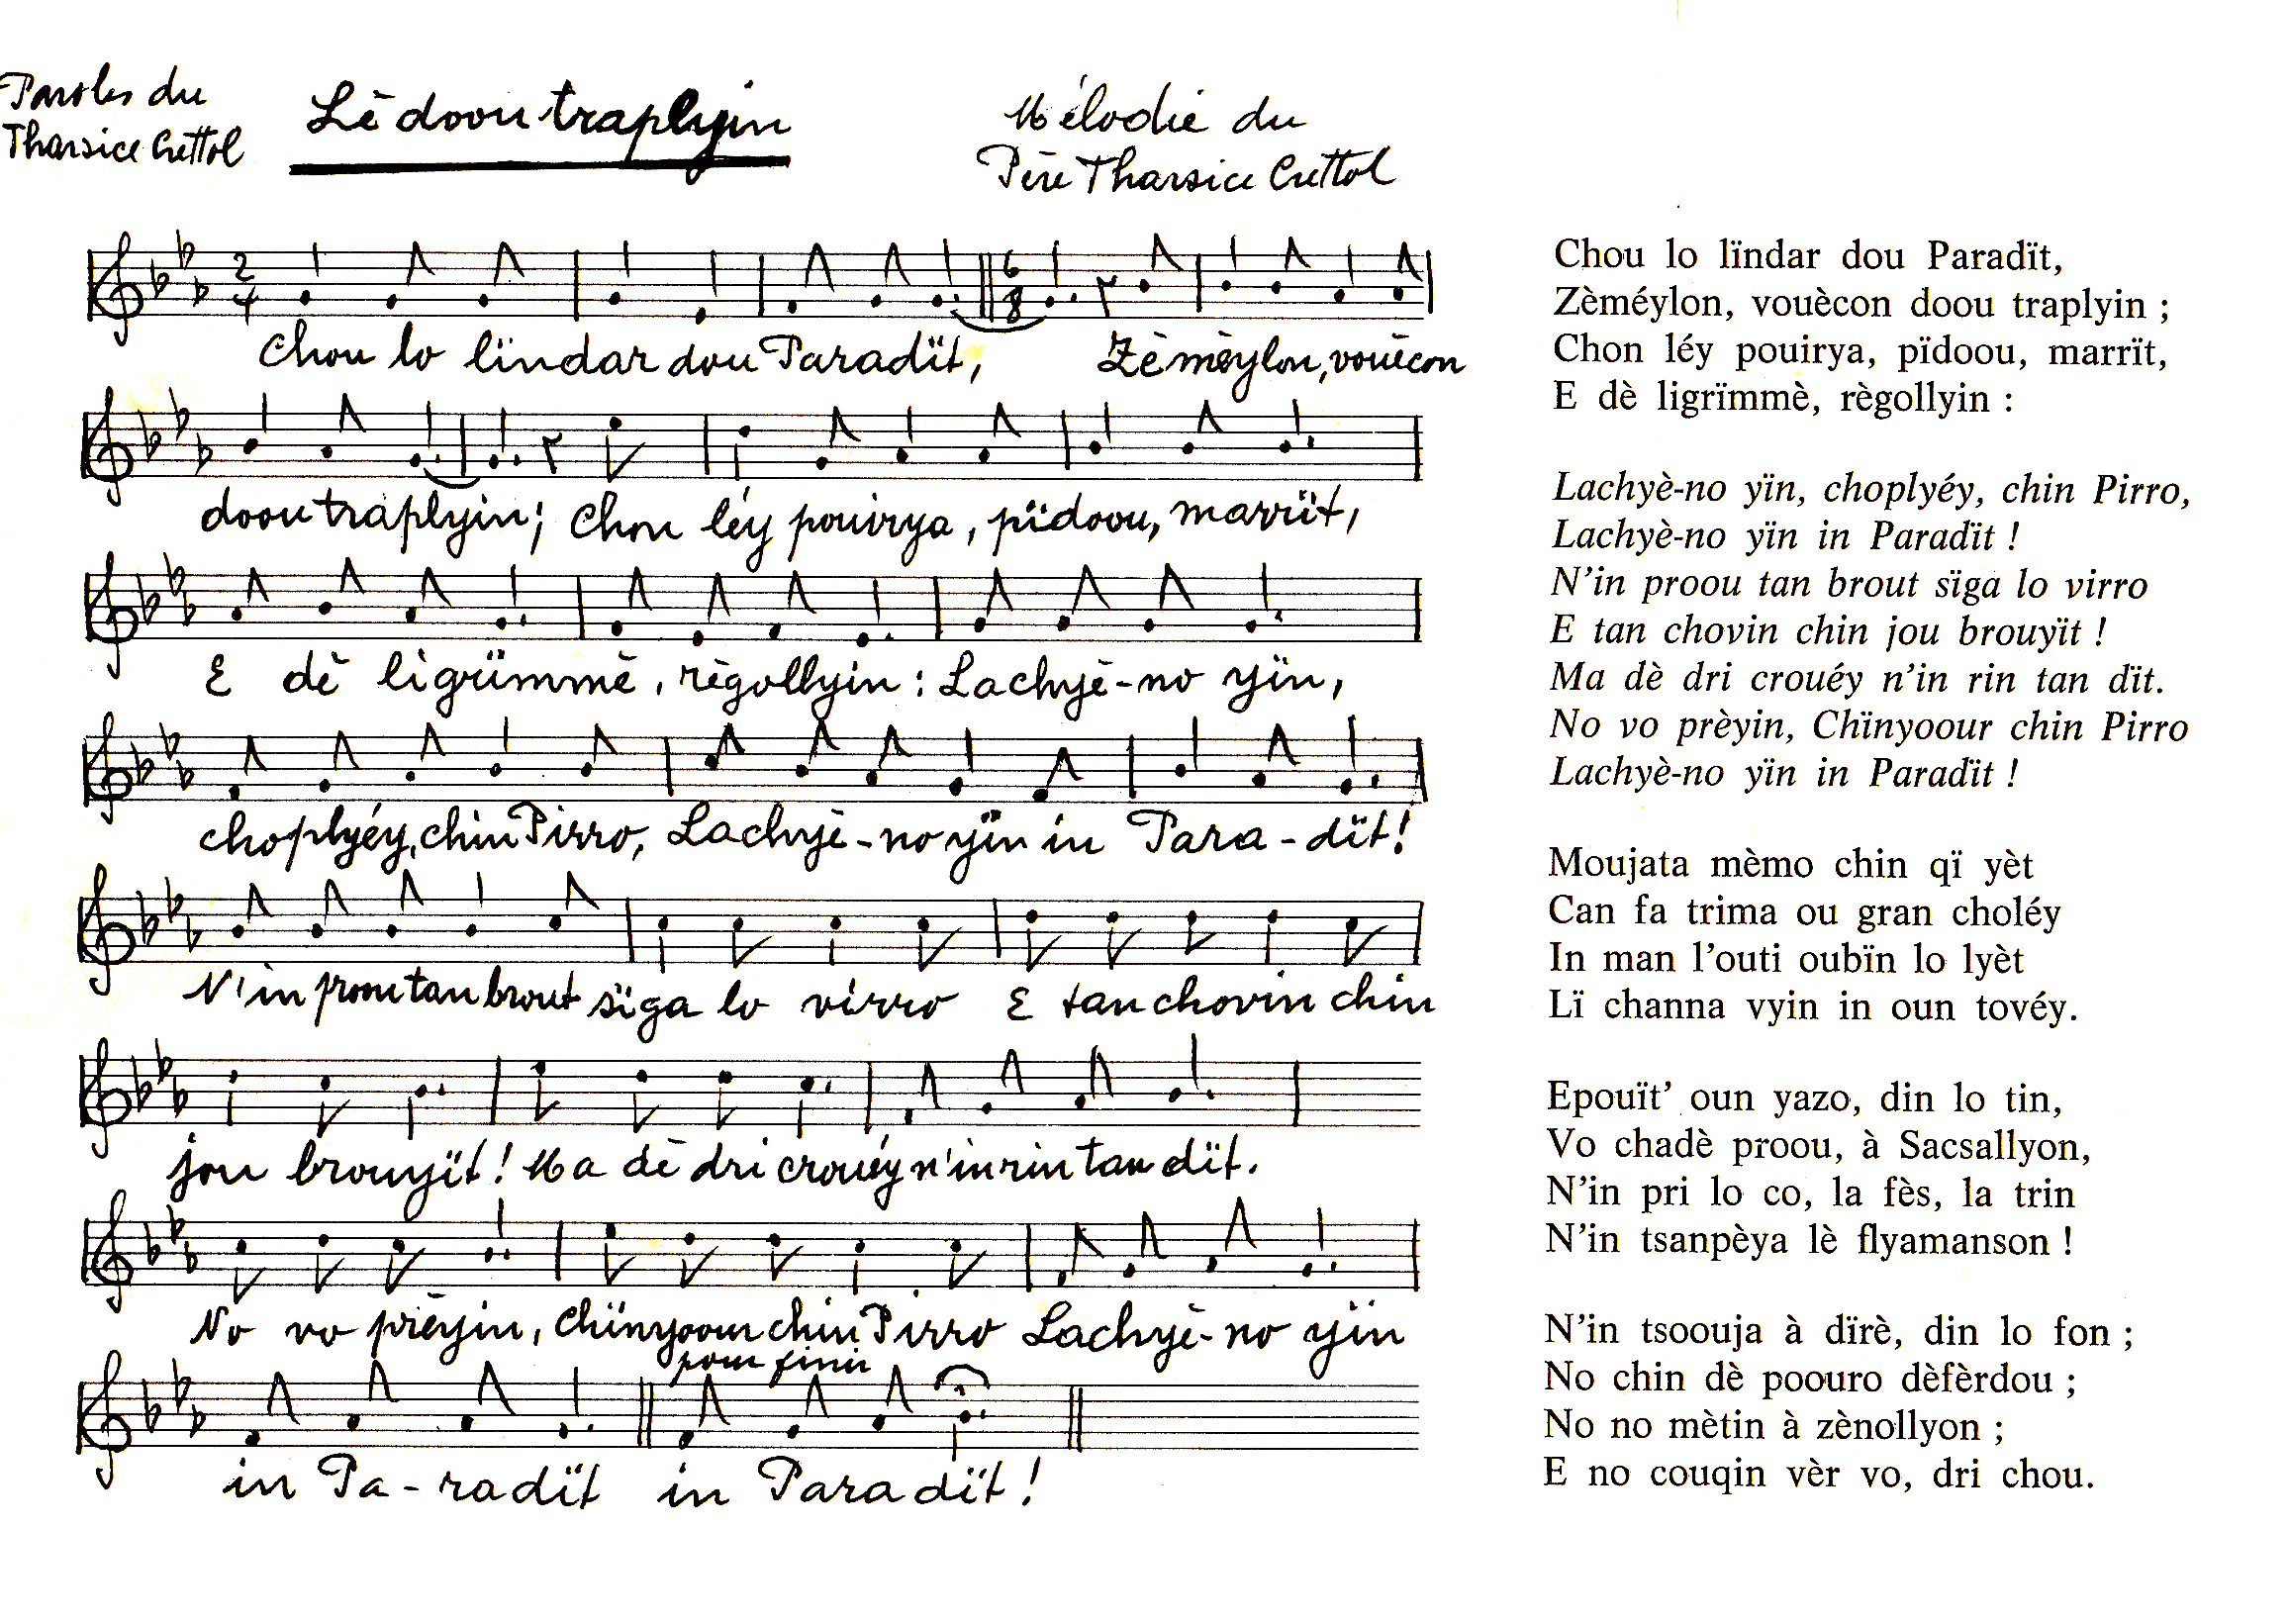 Paroles du
Tharsice Crettol
Lè doou traplyin
Mélodie du
Père Tharsice Crettol
2
4
6
8
Chou lo lïndar dou Paradït, Zèmèylon, vouècon
doou traplyin; Chon léy pouirya, pïdoou, marrït,
E dè ligrïmmè, règollyin : Lachyè-no yïn,
choplyéy, chin Pirro, Lachyè-no yïn in Para-dït!
N'in proou tan brout sïga lo virro E tan chovin chin
jou brouyït! Ma dè dri crouéy n'in rin tan dït.
No vo prèyin, Chïnyoour chin Pirro Lachyè-no yïn
pour finir
in Pa-radït in Paradït!
Chou lo lïndar dou Paradït,
Zèméylon, vouècon doou traplyin ;
Chon léy pouirya, pïdoou, marrït,
E dè ligrïmmè, règollyin :
Lachyè-no yïn, choplyéy, chin Pirro,
Lachyè-no yïn in Paradït !
N'in proou tan brout sïga lo virro
E tan chovin chin jou brouyït !
Ma dè dri crouéy n'in rin tan dït.
No vo prèyin, Chïnyoour chin Pirro
Lachyè-no yïn in Paradït !
Moujata mèmo chin qï yèt
Can fa trima ou gran choléy
In man l'outi oubïn lo lyèt
Lï channa vyin in oun tovéy.
Epouït' oun yazo, din lo tin,
Vo chadè proou, à Sacsallyon,
N'in pri lo co, la fès, la trin
N'in tsanpèya lè flyamanson !
N'in tsoouja à dïrè, din lo fon ;
No chin dè poouro dèfèrdou ;
No no mètin à zènollyon ;
E no couqin vèr vo, dri chou.